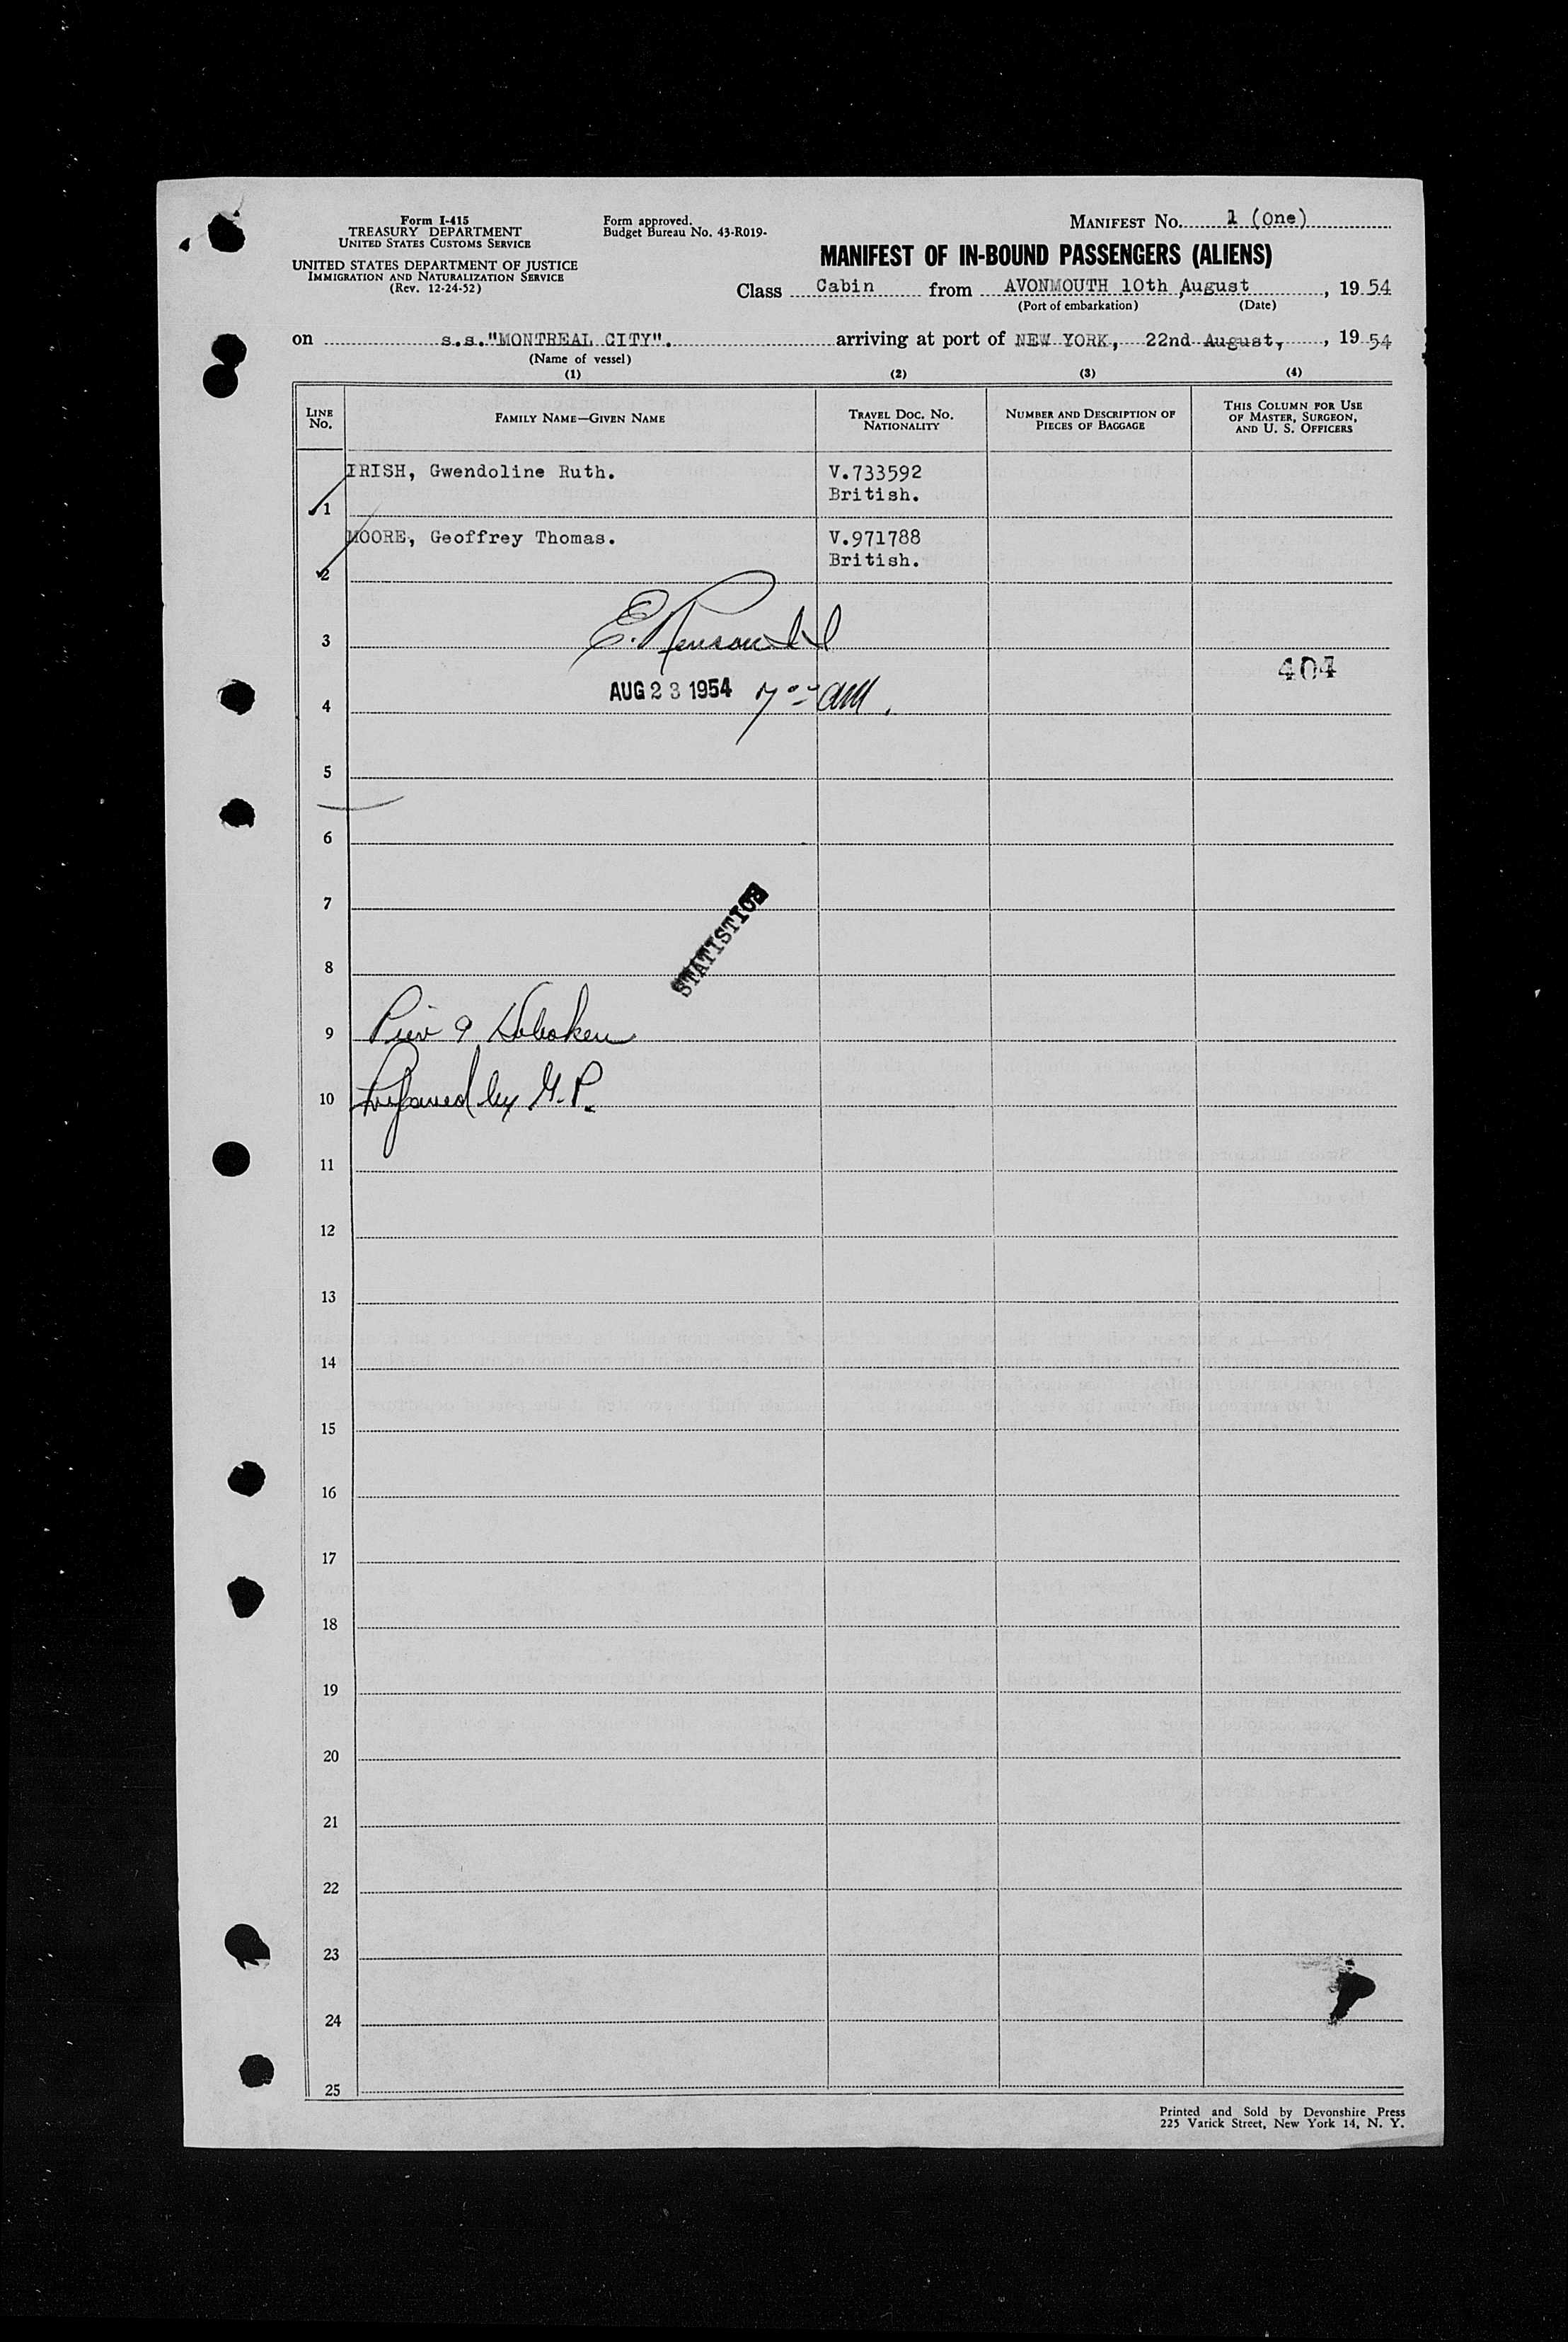 Form I-415
TREASURY DEPARTMENT
UNITED STATES CUSTOMS SERVICE
UNITED STATES DEPARTMENT OF JUSTICE
IMMIGRATION AND NATURALIZATION SERVICE
(Rev. 12-24-52)
Form approved.
Budget Bureau No. 43-R019-
MANIFEST No. 1 (One)
MANIFEST OF IN-BOUND PASSENGERS (ALIENS)
Class Cabin from AVONMOUTH 10th August, 1954
(Port of embarkation) (Date)
on s.s."MONTREAL CITY". arriving at port of NEW YORK, 22nd August, , 1954
(Name of vessel)
(1) (2) (3) (4)
LINE No.
FAMILY NAME—GIVEN NAME
TRAVEL DOC. NO. NATIONALITY
NUMBER AND DESCRIPTION OF PIECES OF BAGGAGE
THIS COLUMN FOR USE OF MASTER, SURGEON, AND U. S. OFFICERS
IRISH, Gwendoline Ruth. V.733592
British.
1
MOORE, Geoffrey Thomas. V.971788
British.
2
E.
3
404
AUG 23 1954 7 00 AM.
4
5
6
7
STATISTICS
8
9 Pier 9 Hoboken
10 Prepared by G.P.
11
12
13
14
15
16
17
18
19
20
21
22
23
24
25
Printed and Sold by Devonshire Press
225 Varick Street, New York 14, N. Y.